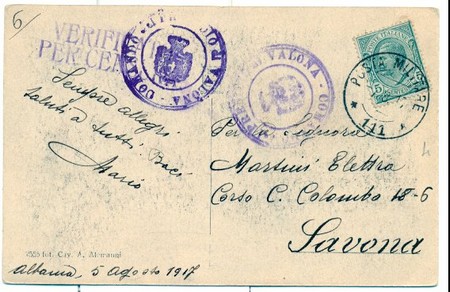 6/
VERIFI
PER CE
COMANDO
VALONA
VALONA
POSTA MILITARE
111
Sempre allegri
saluti a tutti, Baci
Mario
Signora
Martini Elettra
Corso C. Colombo 18-6
Savona
Albania, 5 Agosto 1917